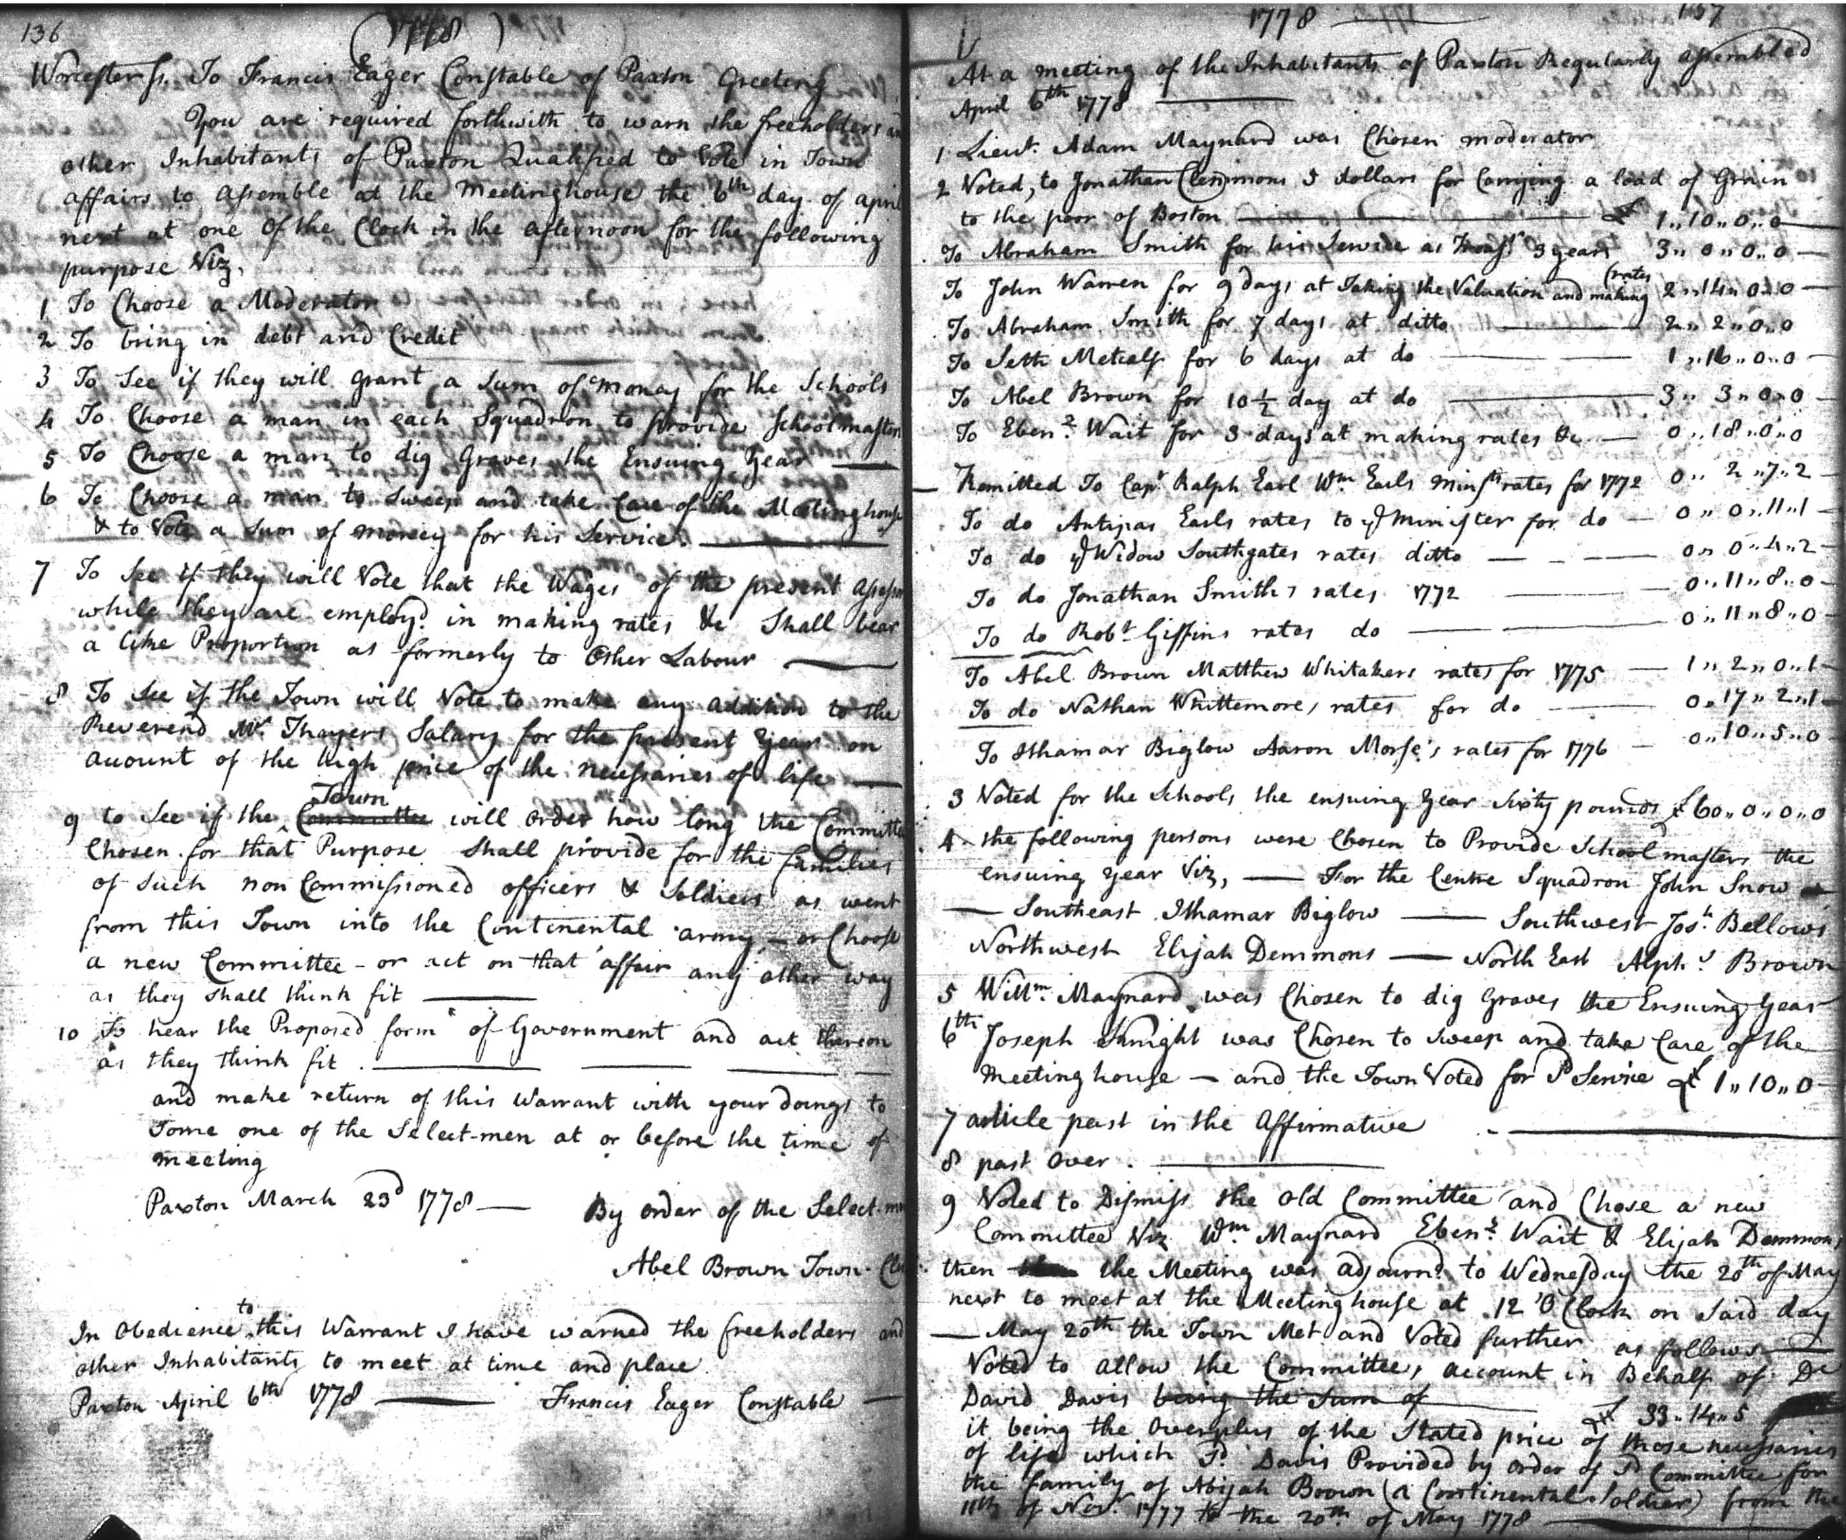 136
(1778)
Worcester ss. To Francis Eager Constable of Paxton Greeting
You are required forthwith to warn the freeholders and
other Inhabitants of Paxton Qualified to Vote in Town
affairs to assemble at the Meetinghouse the 6th day of april
next at one Of the Clock in the afternoon for the following
purpose Viz,
1 To Choose a Moderator
2 To bring in debt and Credit
3 To See if they will grant a Sum of monay for the Schools
4 To Choose a man in each Squadron to provide Schoolmasters
5 To Choose a man to dig Graves the Ensuing Year
6 To Choose a man to Sweep and take Care of the Meetinghouse
& to Vote a Sum of money for his Service.
7 To See if they will Vote that the Wages of the present assessors
while they are employd. in making rates &c Shall bear
a like Proportion as formerly to Other Labour
8 To See if the Town will Vote to make any addition to the
Reverend Mr. Thayers Salary for the present Year on
account of the high price of the necessaries of life
Town
9 to See if the Committee will order how long the Committee
Chosen for that Purpose Shall provide for the families
of Such non Commissioned officers & Soldiers as went
from this Town into the Continental army - or Choose
a new Committee - or act on that affair any other way
as they shall think fit
10 To hear the Proposed form of Government and act thereon
as they think fit
and make return of this Warrant with your doings to
Some one of the Select-men at or before the time of
meeting
Paxton March 23d 1778 — By order of the Select-men
Abel Brown Town-
In Obedience to this Warrant I have warned the freeholders and
other Inhabitants to meet at time and place
Paxton April 6th 1778 — Francis Eager Constable
1778 157
At a meeting of the Inhabitants of Paxton Regularly assembled
April 6th 1778
1 Lieut. Adam Maynard was Chosen moderator
2 Voted, to Jonathan Clemmons 5 dollars for Carrying a load of Grain
to the poor of Boston — £ 1,,10,,0,,0
To Abraham Smith for his Service as Treasr 3 years 3,,0,,0,,0
(rates
To John Warren for 9 days at Taking the Valuation and making 2,,14,,0,,0
To Abraham Smith for 7 days at ditto — 2,,2,,0,,0
To Seth Metcalf for 6 days at do — 1,,16,,0,,0
To Abel Brown for 10 1/2 day at do — 3,,3,,0,,0
To Ebenz. Wait for 3 days at making rates &c. — 0,,18,,0,,0
Remitted To Capt Ralph Earl Wm Earls Minstrs rates for 1772 0,,2,,7,,2
To do Antipas Earls rates to ye Minister for do — 0,,0,,11,,1
To do ye Widow Southgates rates ditto — 0,,0,,4,,2
To do Jonathan Smiths rates 1772 — 0,,11,,8,,0
To do Robt Giffins rates do — 0,,11,,8,,0
To Abel Brown Matthew Whitakers rates for 1775 — 1,,2,,0,,1
To do Nathan Whittemores rates for do — 0,,17,,2,,1
To Ithamar Biglow Aaron Morse's rates for 1776 — 0,,10,,5,,0
3 Voted for the Schools the ensuing Year Sixty pounds £60,,0,,0,,0
4 the following persons were Chosen to Provide Schoolmasters the
ensuing year Viz, — For the Centre Squadron John Snow
— Southeast Ithamar Biglow — Southwest Jos.h Bellows
Northwest Elijah Demmons — North East Alphs Brown
5 Willm. Maynard was Chosen to dig Graves the Ensuing Year
6th Joseph Knight was Chosen to Sweep and take Care of the
Meetinghouse — and the Town Voted for sd Service £ 1,,10,,0
7 article past in the Affirmative
8 past Over.
9 Voted to Dismiss the old Committee and Chose a new
Committee Viz Wm Maynard Ebenz. Wait & Elijah Demmons
then the Meeting was adjournd. to Wednesday the 20th of May
next to meet at the Meetinghouse at 12 'O Clock on Said day
— May 20th the Town Met and Voted further as follows
Voted to allow the Committees account in Behalf of De
David Davis being the Sum of £ 33,,14,,5
it being the Overplus of the Stated price of those necessaries
of life which sd Davis Provided by order of sd Committee for
the family of Abijah Brown (a Continental Soldier) from the
11th of Novr 1777 to the 20th of May 1778